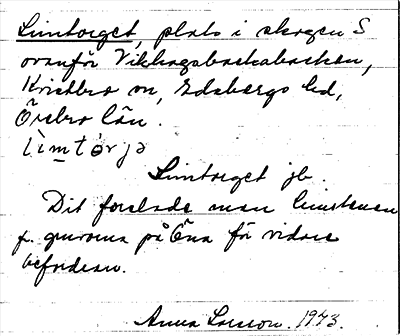 Limtorget, plats i skogen S
ovanför Vikhagsbackabacken,
Kvistbro sn, Edsbergs hd,
Örebro län.
lìmtòrjə
Limtorget jb.
Dit forslade man limstenen
fr. gruvorna på Åna för vidare
befordran.
Anna Larsson 1973.